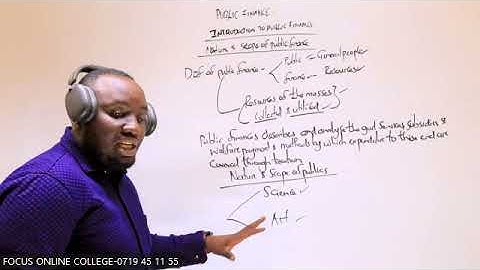 PUBLIC FINANCE
INTRODUCTION TO PUBLIC FINANCE
Nature & Scope of public finance
Def of public finance
Public = General people
finance = Resources
Resources of the masses?
collected & utilized
Public finances describes and analyse the govt services subsidies &
welfare payment & methods by which expenditure to these end are
Covered through taxation
Nature & Scope of publics
Science
Art
FOCUS ONLINE COLLEGE-0719 45 11 55